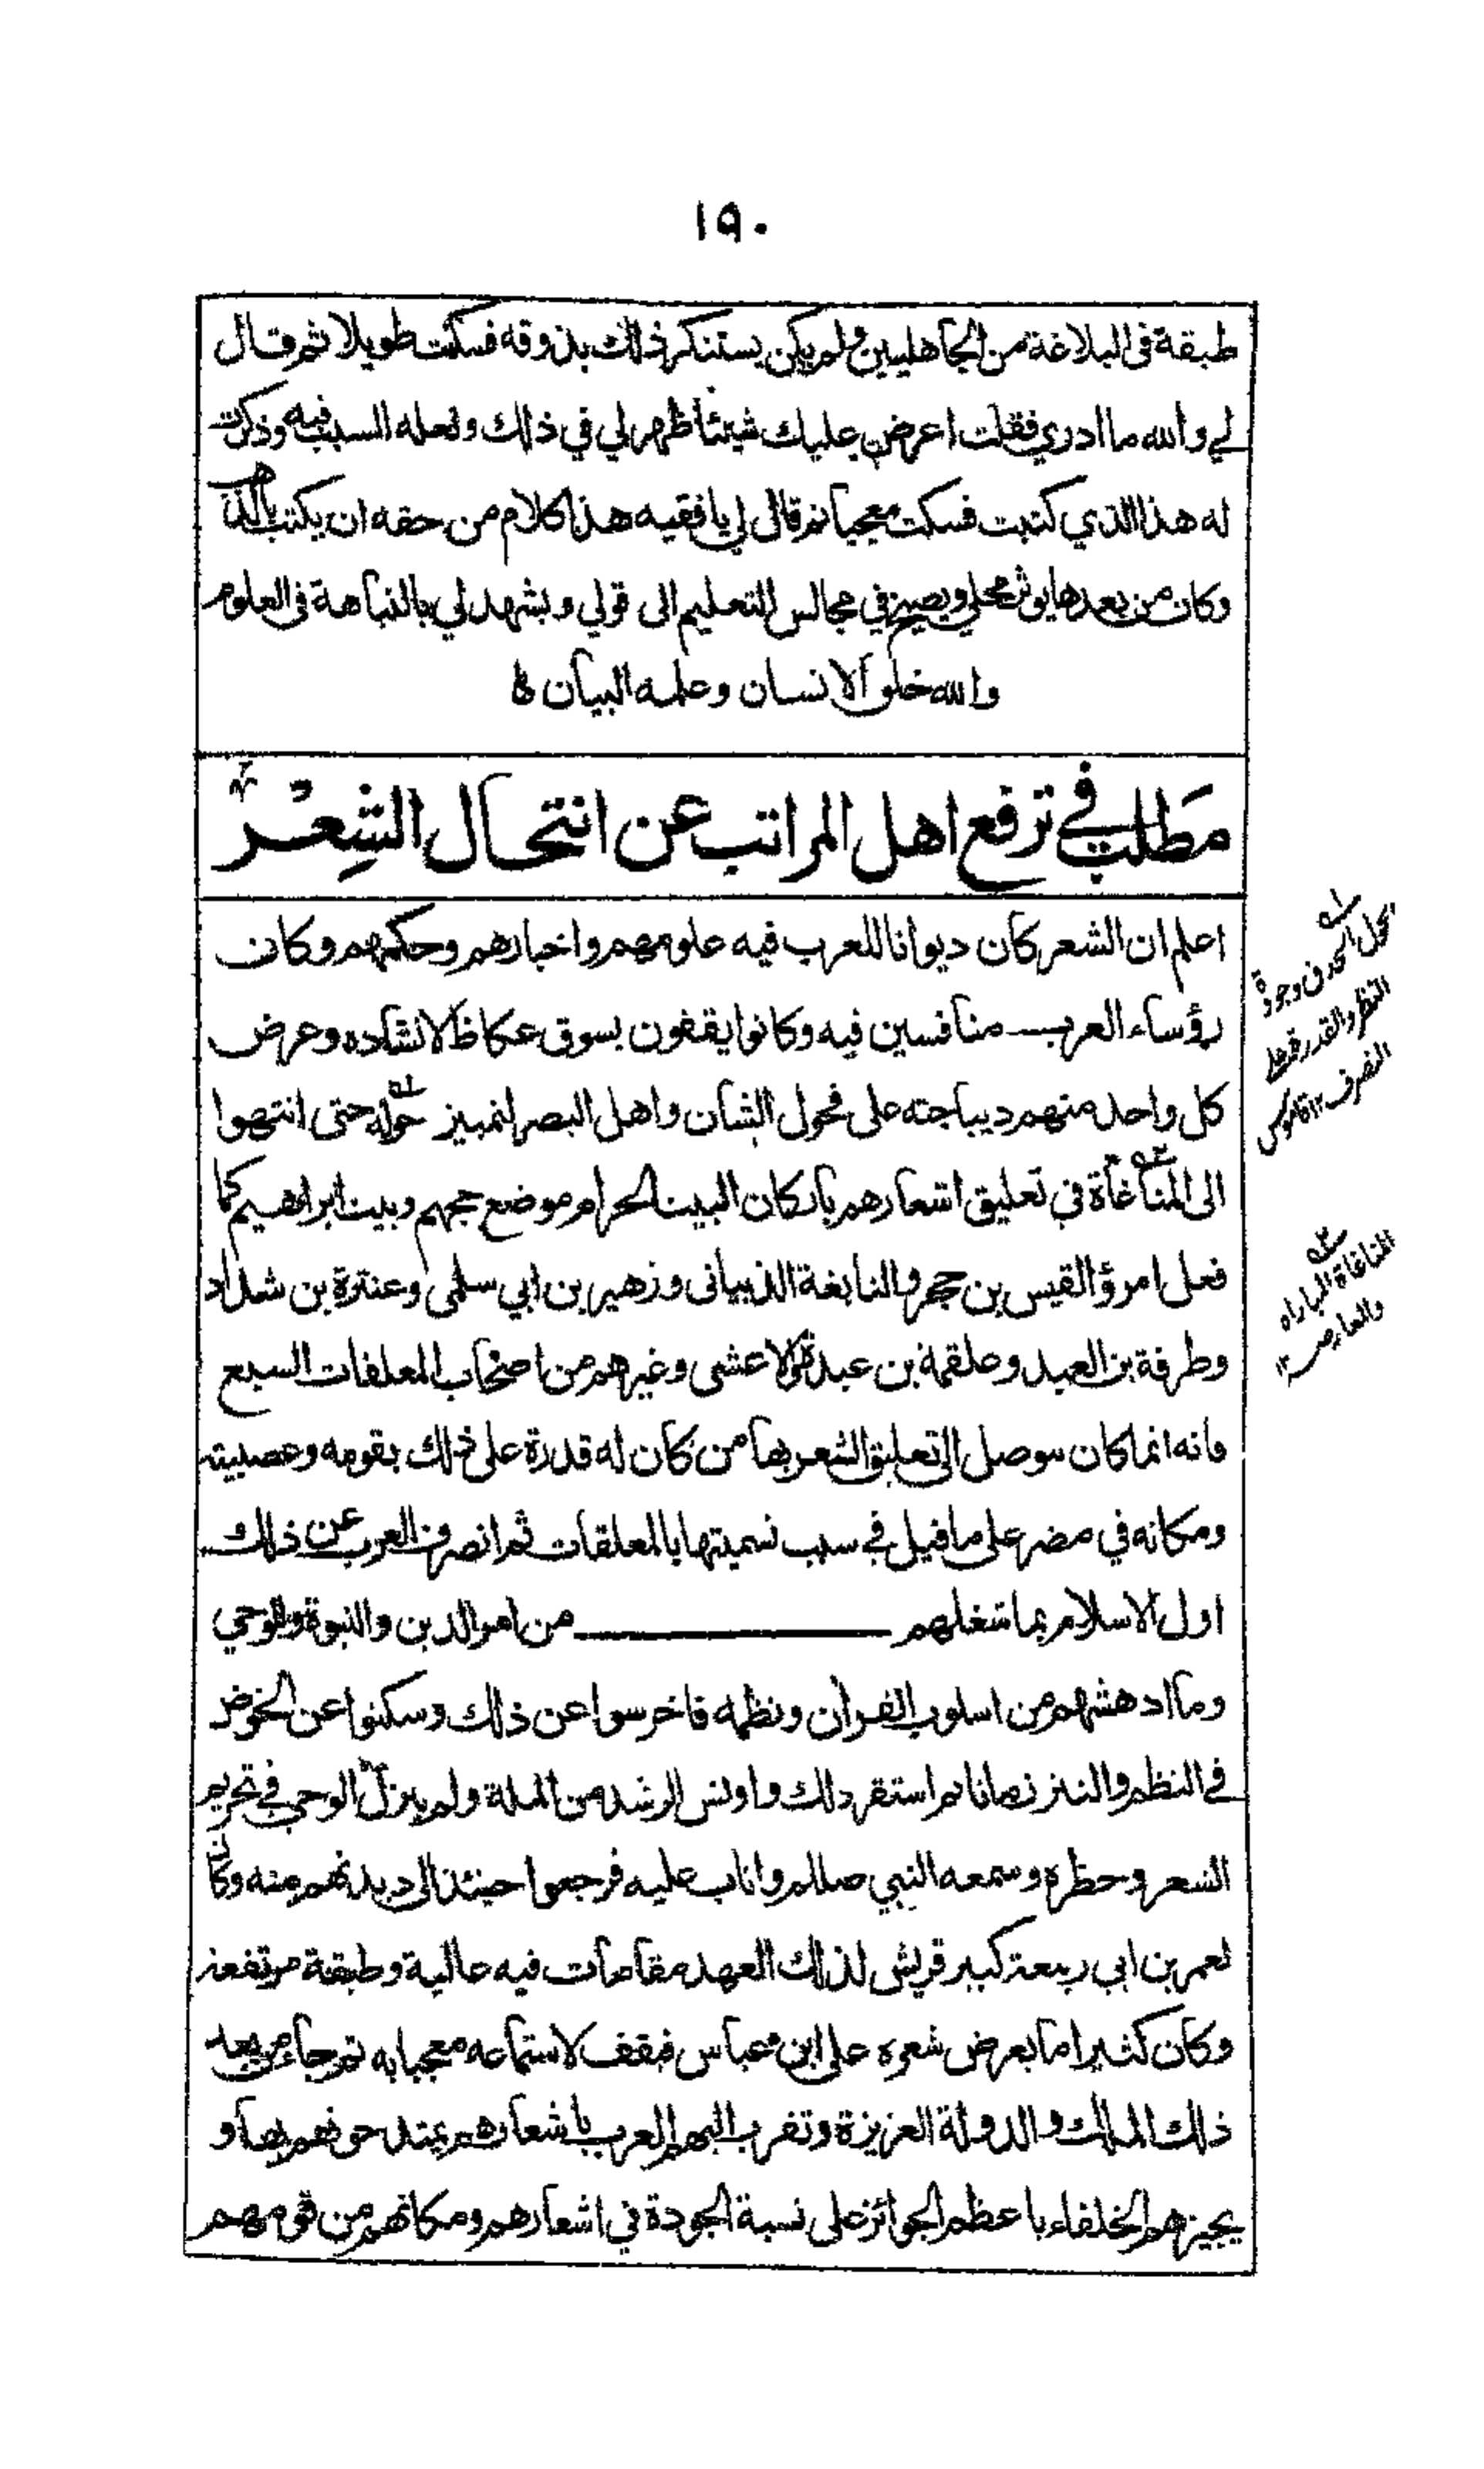 ١٩٠
طبقة فى البلاغة من الجاهليين ولم يكن يستنكر ذلك بذوقه فسكت طويلا ثم قال
لي والله ما ادري فقلت اعرض عليك شيئا ظهر لي في ذلك ولعله السبب فيه وذكرت
له هذا الذي كتبت فسكت معجبا ثم قال لي يا فقيه هذا كلام من حقه ان يكتب بالذهب
وكان من بعدها يوثر محلي ويصيخ في مجالس التعليم الى قولي ويشهد لي بالنباهة فى العلوم
والله خلق الانسان وعلمه البيان
مَطلب في ترفع اهل المراتب عن انتحال الشِعْر
اعلم ان الشعر كان ديوانا للعرب فيه علومهم واخبارهم وحكمهم وكان
رؤساء العرب منافسين فيه وكانوا يقفون بسوق عكاظ لانشاده وعرض
كل واحد منهم ديباجته على فحول الشان واهل البصر لتمييز حوله حتى انتهوا
الى المناغاة في تعليق اشعارهم باركان البيت الحرام موضع حجهم وبيت ابراهيم كما
فعل امرؤ القيس بن حجر والنابغة الذبيانى وزهير بن ابي سلمى وعنترة بن شداد
وطرفة بن العبد وعلقمة بن عبدة والاعشى وغيرهم من اصحاب المعلقات السبع
فانه انما كان يتوصل الى تعليق الشعر بها من كان له قدرة على ذلك بقومه وعصبيته
ومكانه في مضر على ما قيل في سبب تسميتها بالمعلقات ثم انصرف العرب عن ذلك
اول الاسلام بما شغلهم من امر الدين والنبوة والوحي
وما ادهشهم من اسلوب القران ونظمه فاخرسوا عن ذلك وسكتوا عن الخوض
في النظم والنثر زمانا ثم استقر ذلك واونس الرشد من الملة ولم ينزل الوحي في تحريم
الشعر وحظره وسمعه النبي صللم واثاب عليه فرجعوا حينئذ الى ديدنهم منه وكان
لعمر بن ابي ربيعة كبير قريش لذلك العهد مقامات فيه عالية وطبقة مرتفعة
وكان كثيرا ما يعرض شعره على ابن عباس فيقف لاستماعه معجبا به ثم جاء من بعد
ذلك الملك والدولة العزيزة وتقرب اليهم العرب باشعارهم يمتدحونهم بها و
يجيزهم الخلفاء باعظم الجوائز على نسبة الجودة في اشعارهم ومكانهم من قومهم
النظر والقدرة على
التصرف ١٢ قاموس
المناغاة المباراه